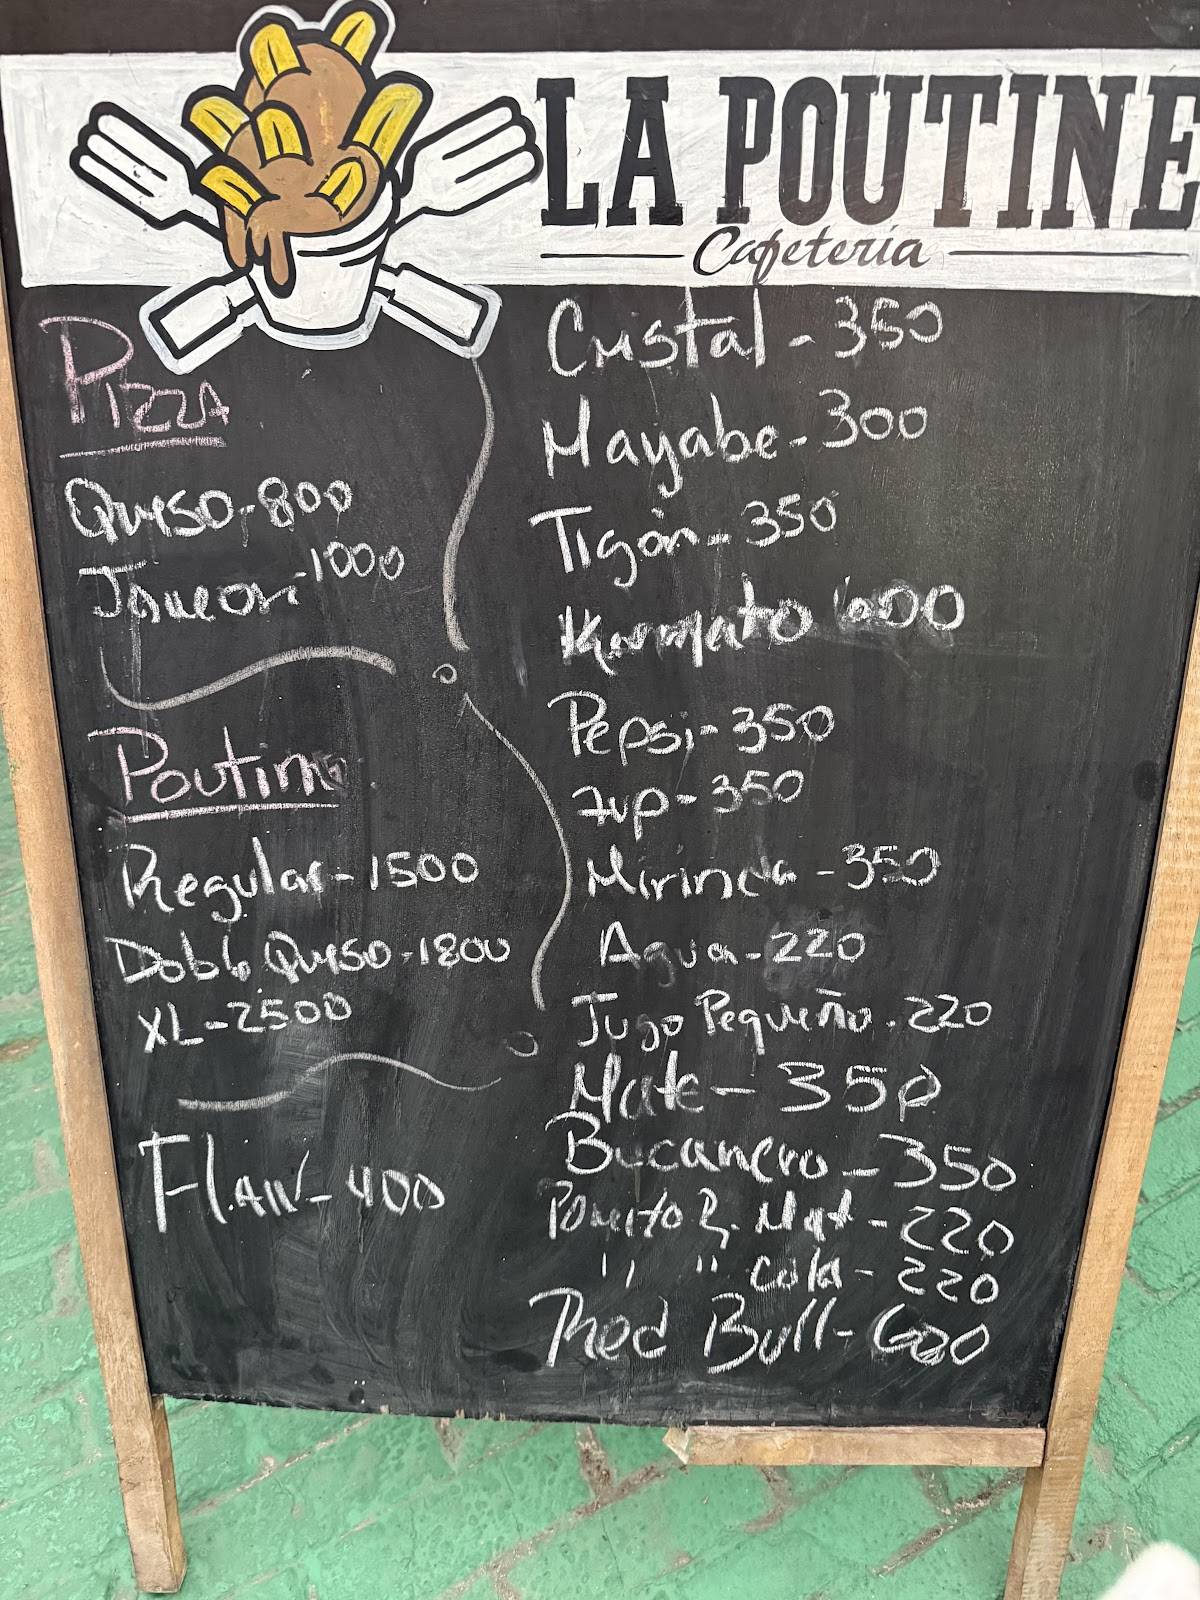 LA POUTINE
Cafetería
Pizza
Queso - 800
Jamón - 1000
Poutine
Regular - 1500
Doble Queso - 1800
XL - 2500
Flan - 400
Cristal - 350
Mayabe - 300
Tigón - 350
600
Pepsi - 350
7up - 350
Mirinda - 350
Agua - 220
Jugo Pequeño - 220
Mate - 350
Bucanero - 350
Pomito P. Mat - 220
" " Cola - 220
Red Bull - 600